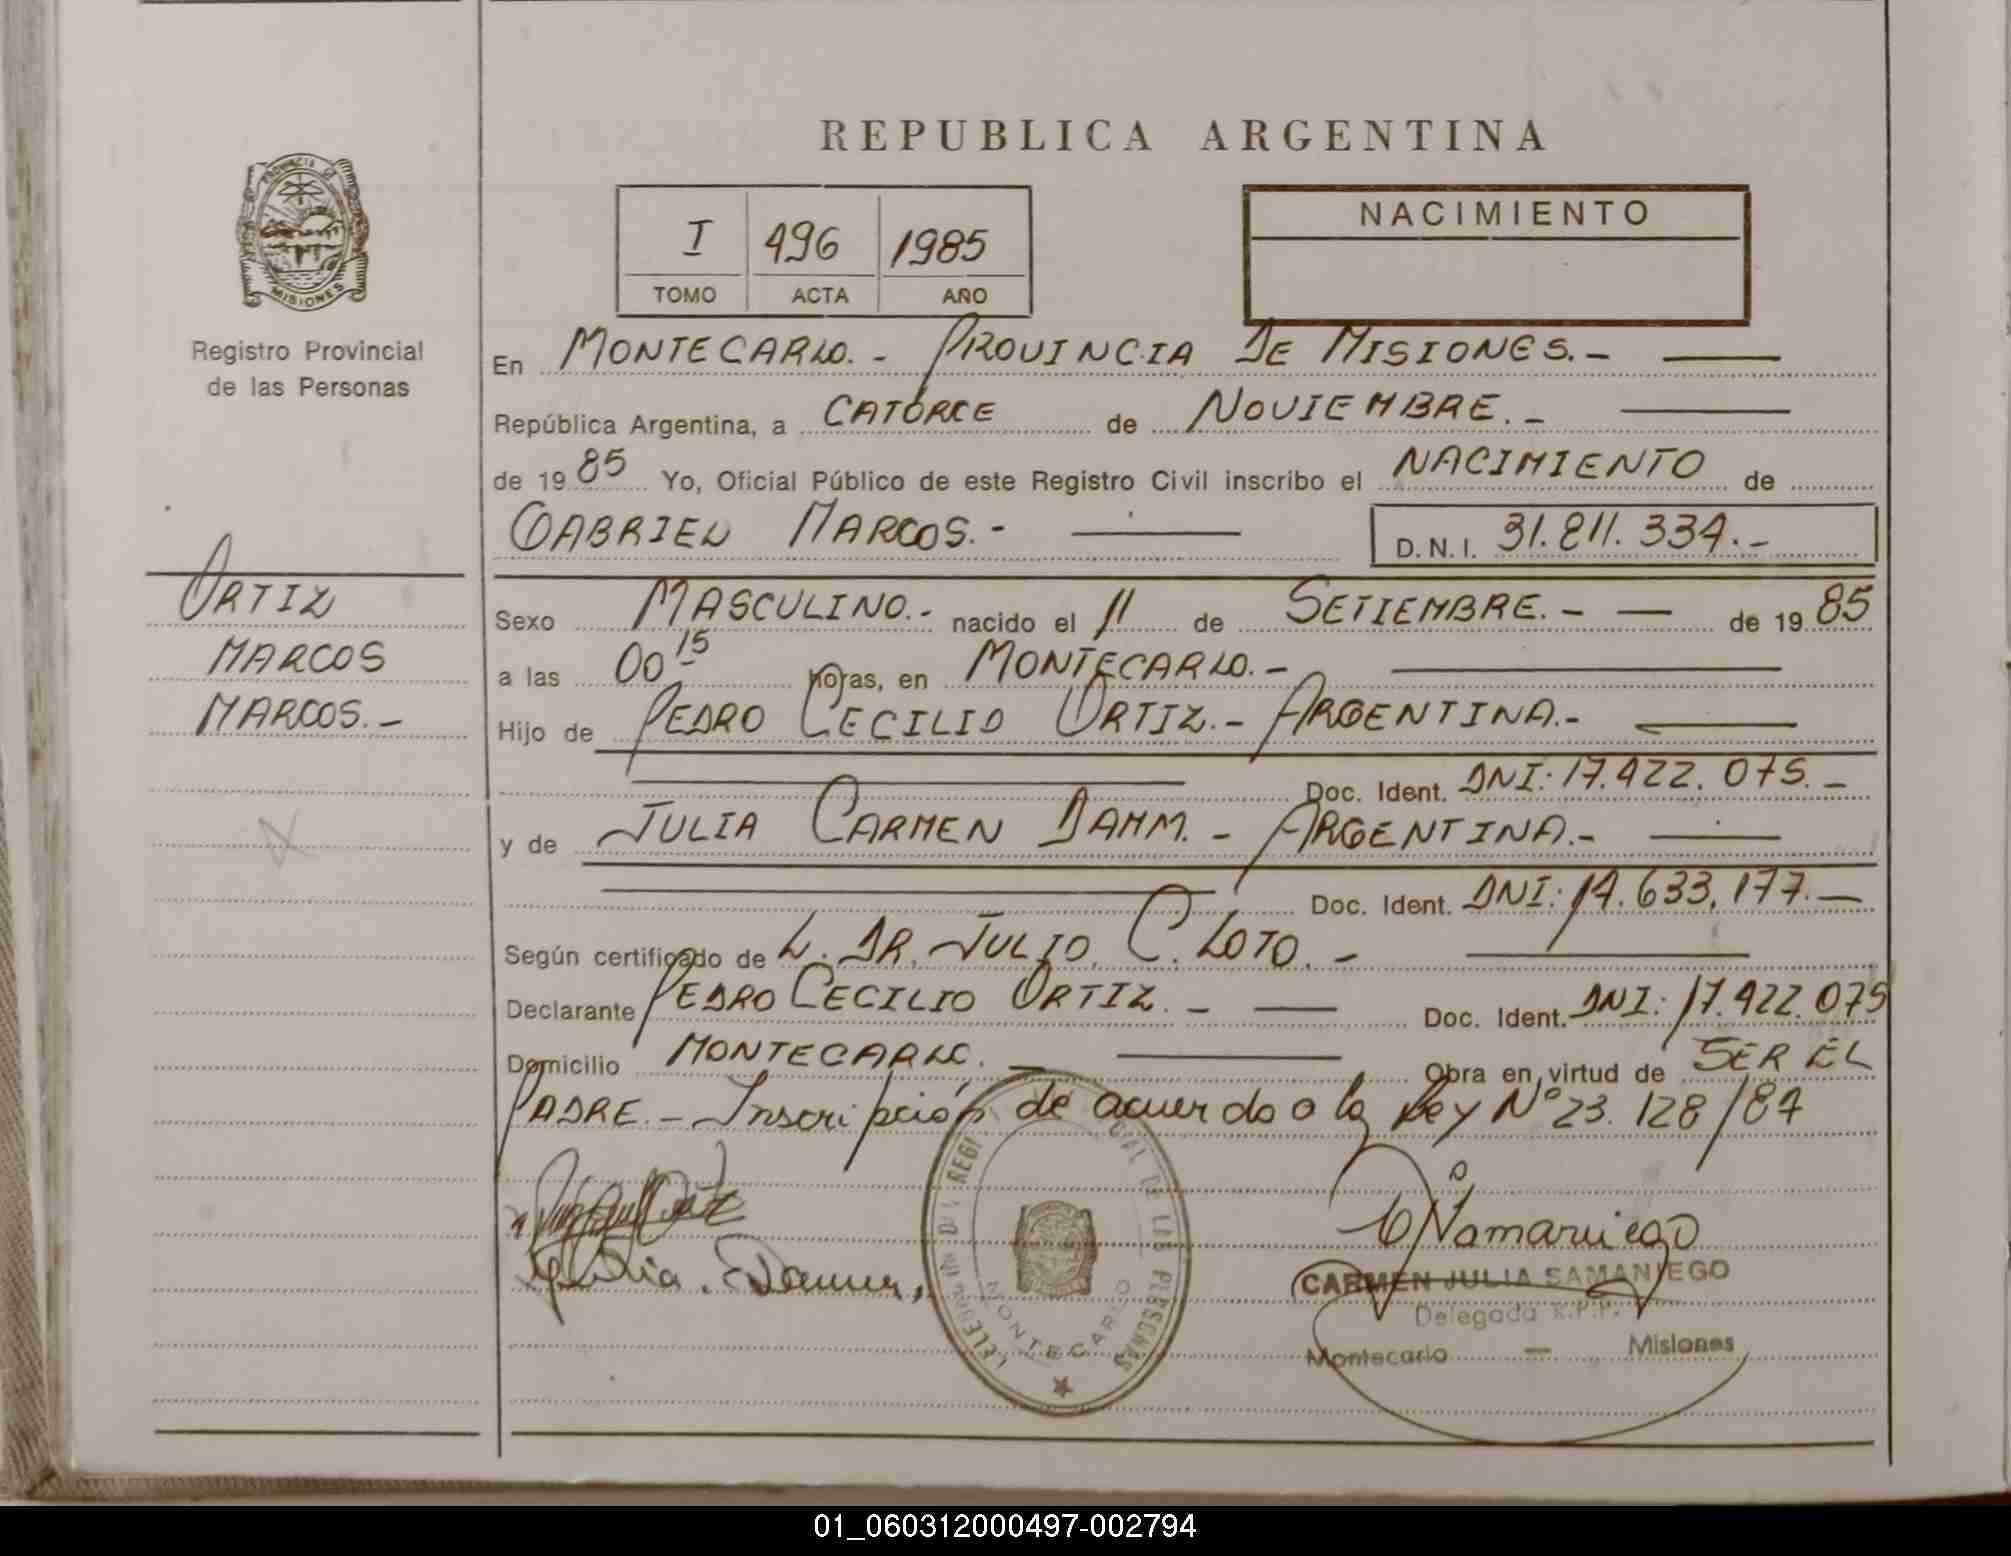 REPUBLICA ARGENTINA
PROVINCIA DE
MISIONES
Registro Provincial
de las Personas
I 496 1985
TOMO ACTA AÑO
NACIMIENTO
En MONTECARLO. - PROVINCIA DE MISIONES. -
República Argentina, a CATORCE de NOVIEMBRE. -
de 1985 Yo, Oficial Público de este Registro Civil inscribo el NACIMIENTO de
GABRIEL MARCOS. - D.N.I. 31.811.334. -
ORTIZ
MARCOS
MARCOS. -
Sexo MASCULINO. - nacido el 11 de SETIEMBRE. - - de 1985
a las 00 15 horas, en MONTECARLO. -
Hijo de PEDRO CECILIO ORTIZ. - ARGENTINA. -
Doc. Ident. DNI: 17.422.075. -
y de JULIA CARMEN DAMM. - ARGENTINA. -
Doc. Ident. DNI: 14.633.177. -
Según certificado de L. DR. JULIO. C. LOTO. -
Declarante PEDRO CECILIO ORTIZ. - Doc. Ident. DNI: 17.422.075
Domicilio MONTECARLO. - Obra en virtud de SER EL
PADRE. - Inscripción de acuerdo a la Ley Nº 23.128/84
Julia. Damm,
MONTECARLO
DE LAS PERSONAS
CSamaniego
CARMEN JULIA SAMANIEGO
Delegada R.P.P.
Montecarlo - Misiones
01_060312000497-002794